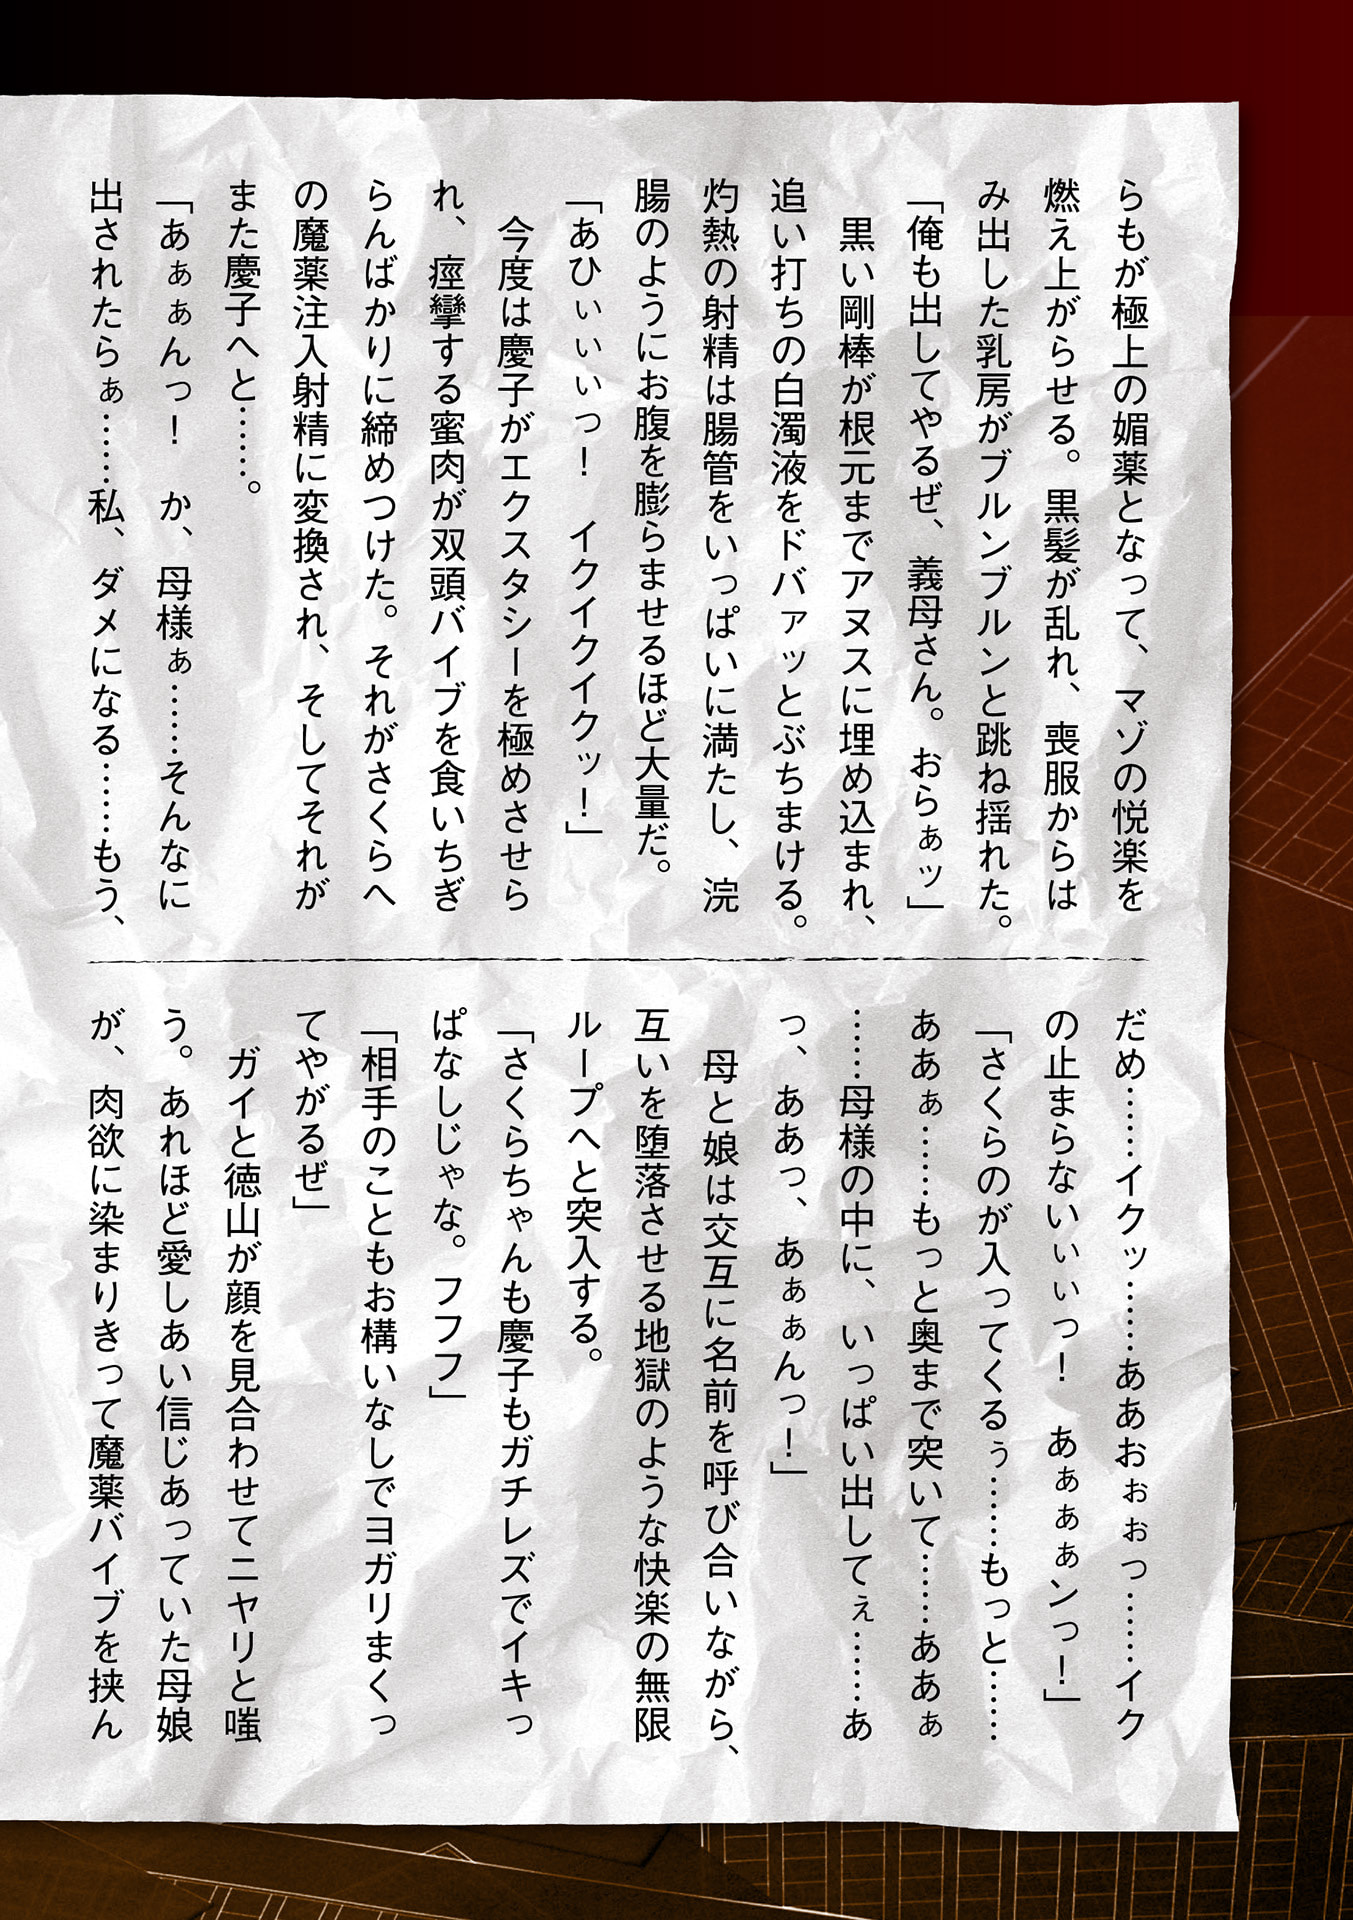 らもが極上の媚薬となって、マゾの悦楽を
燃え上がらせる。黒髪が乱れ、喪服からは
み出した乳房がブルンブルンと跳ね揺れた。
「俺も出してやるぜ、義母さん。おらぁッ」
黒い剛棒が根元までアヌスに埋め込まれ、
追い打ちの白濁液をドバァッとぶちまける。
灼熱の射精は腸管をいっぱいに満たし、浣
腸のようにお腹を膨らませるほど大量だ。
「あひぃぃぃっ！　イクイクイクッ！」
今度は慶子がエクスタシーを極めさせら
れ、痙攣する蜜肉が双頭バイブを食いちぎ
らんばかりに締めつけた。それがさくらへ
の魔薬注入射精に変換され、そしてそれが
また慶子へと……。
「あぁぁんっ！　か、母様ぁ……そんなに
出されたらぁ……私、ダメになる……もう、
だめ……イクッ……ああおぉぉっ……イク
の止まらないぃぃっ！　あぁぁぁンっ！」
「さくらのが入ってくるぅ……もっと……
ああぁ……もっと奥まで突いて……ああぁ
……母様の中に、いっぱい出してぇ……あ
っ、ああっ、あぁぁんっ！」
母と娘は交互に名前を呼び合いながら、
互いを堕落させる地獄のような快楽の無限
ループへと突入する。
「さくらちゃんも慶子もガチレズでイキっ
ぱなしじゃな。フフフ」
「相手のこともお構いなしでヨガリまくっ
てやがるぜ」
ガイと徳山が顔を見合わせてニヤリと嗤
う。あれほど愛しあい信じあっていた母娘
が、肉欲に染まりきって魔薬バイブを挟ん